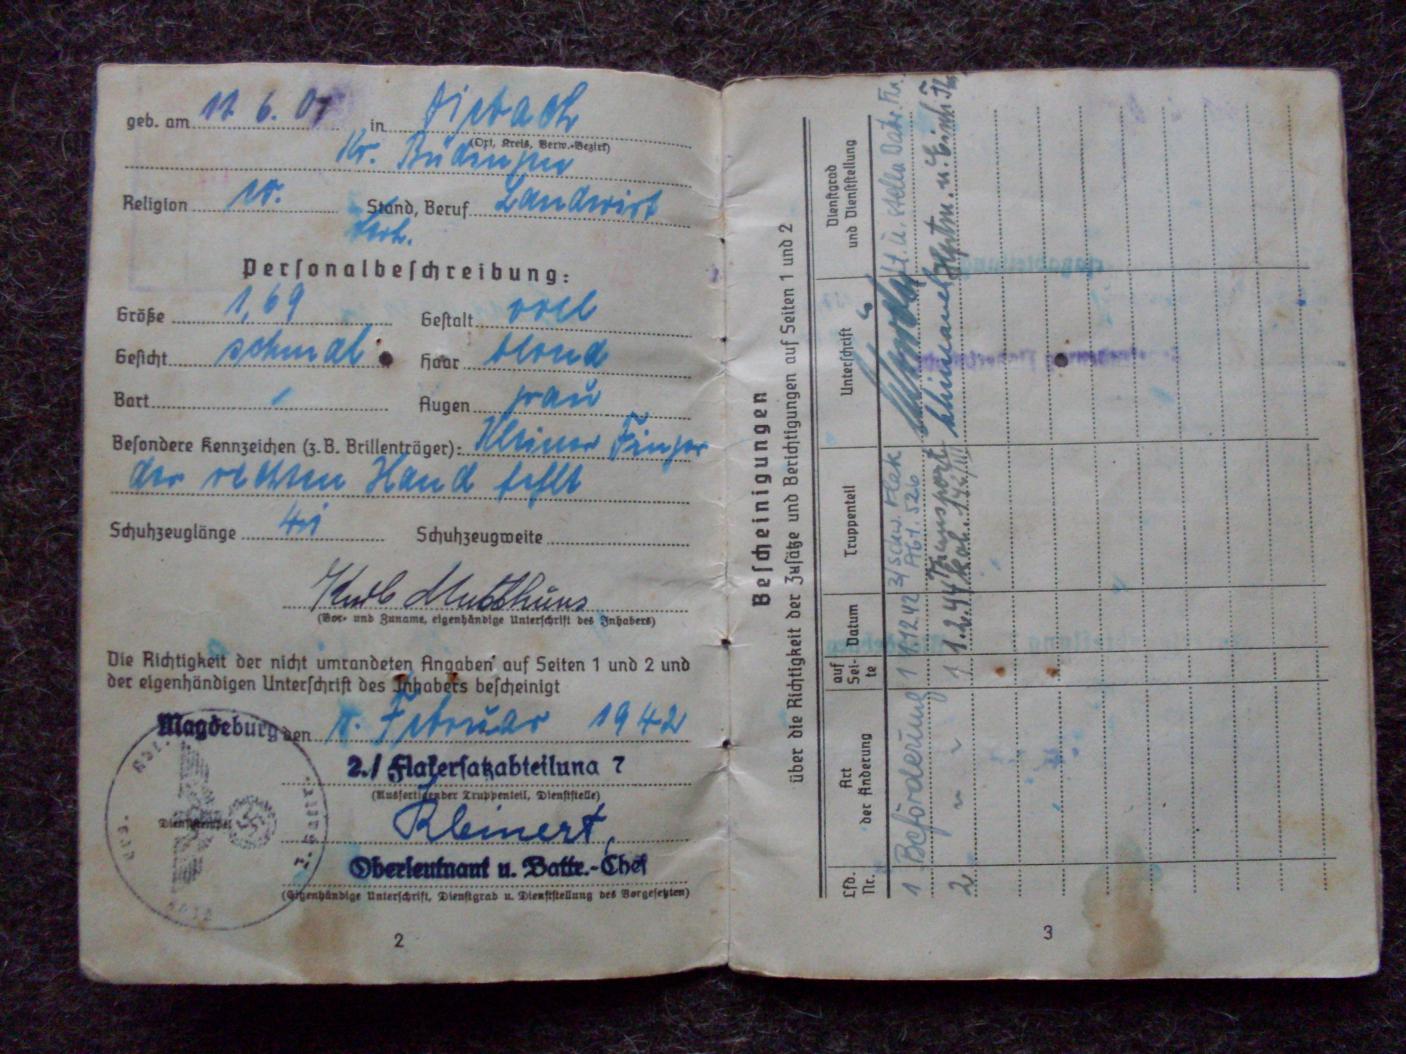 geb. am 12 6. 07 in
(Ort, Kreis, Verw.-Bezirk)
Kr. Büdingen
Religion ev. Stand, Beruf Landwirt
verh.
Personalbeschreibung:
Größe 1,69 Gestalt voll
Gesicht schmal Haar blond
Bart / Augen grau
Besondere Kennzeichen (z. B. Brillenträger): Kleiner Finger
der rechten Hand fehlt
Schuhzeuglänge 41 Schuhzeugweite
Karl
(Vor- und Zuname, eigenhändige Unterschrift des Inhabers)
Die Richtigkeit der nicht umrandeten Angaben auf Seiten 1 und 2 und
der eigenhändigen Unterschrift des Inhabers bescheinigt
Magdeburg den Februar 1942
2./ Flakersatzabteilung 7
(Ausfertigender Truppenteil, Dienststelle)
Dienststempel
Kleinert,
Oberleutnant u. Battr.-Chef
(Eigenhändige Unterschrift, Dienstgrad u. Dienststellung des Vorgesetzten)
2
Bescheinigungen
über die Richtigkeit der Zusätze und Berichtigungen auf Seiten 1 und 2
Lfd. Nr. Art der Änderung auf Seite Datum Truppenteil Unterschrift Dienstgrad und Dienststellung
1 Beförderung 1 1.12.42 2/schw. Flak Abt. 526 Lt. u. stellv. Battr. Fü.
2 " " 1 1.2.44 Transport Kol. Hptm. u. Einh.
3